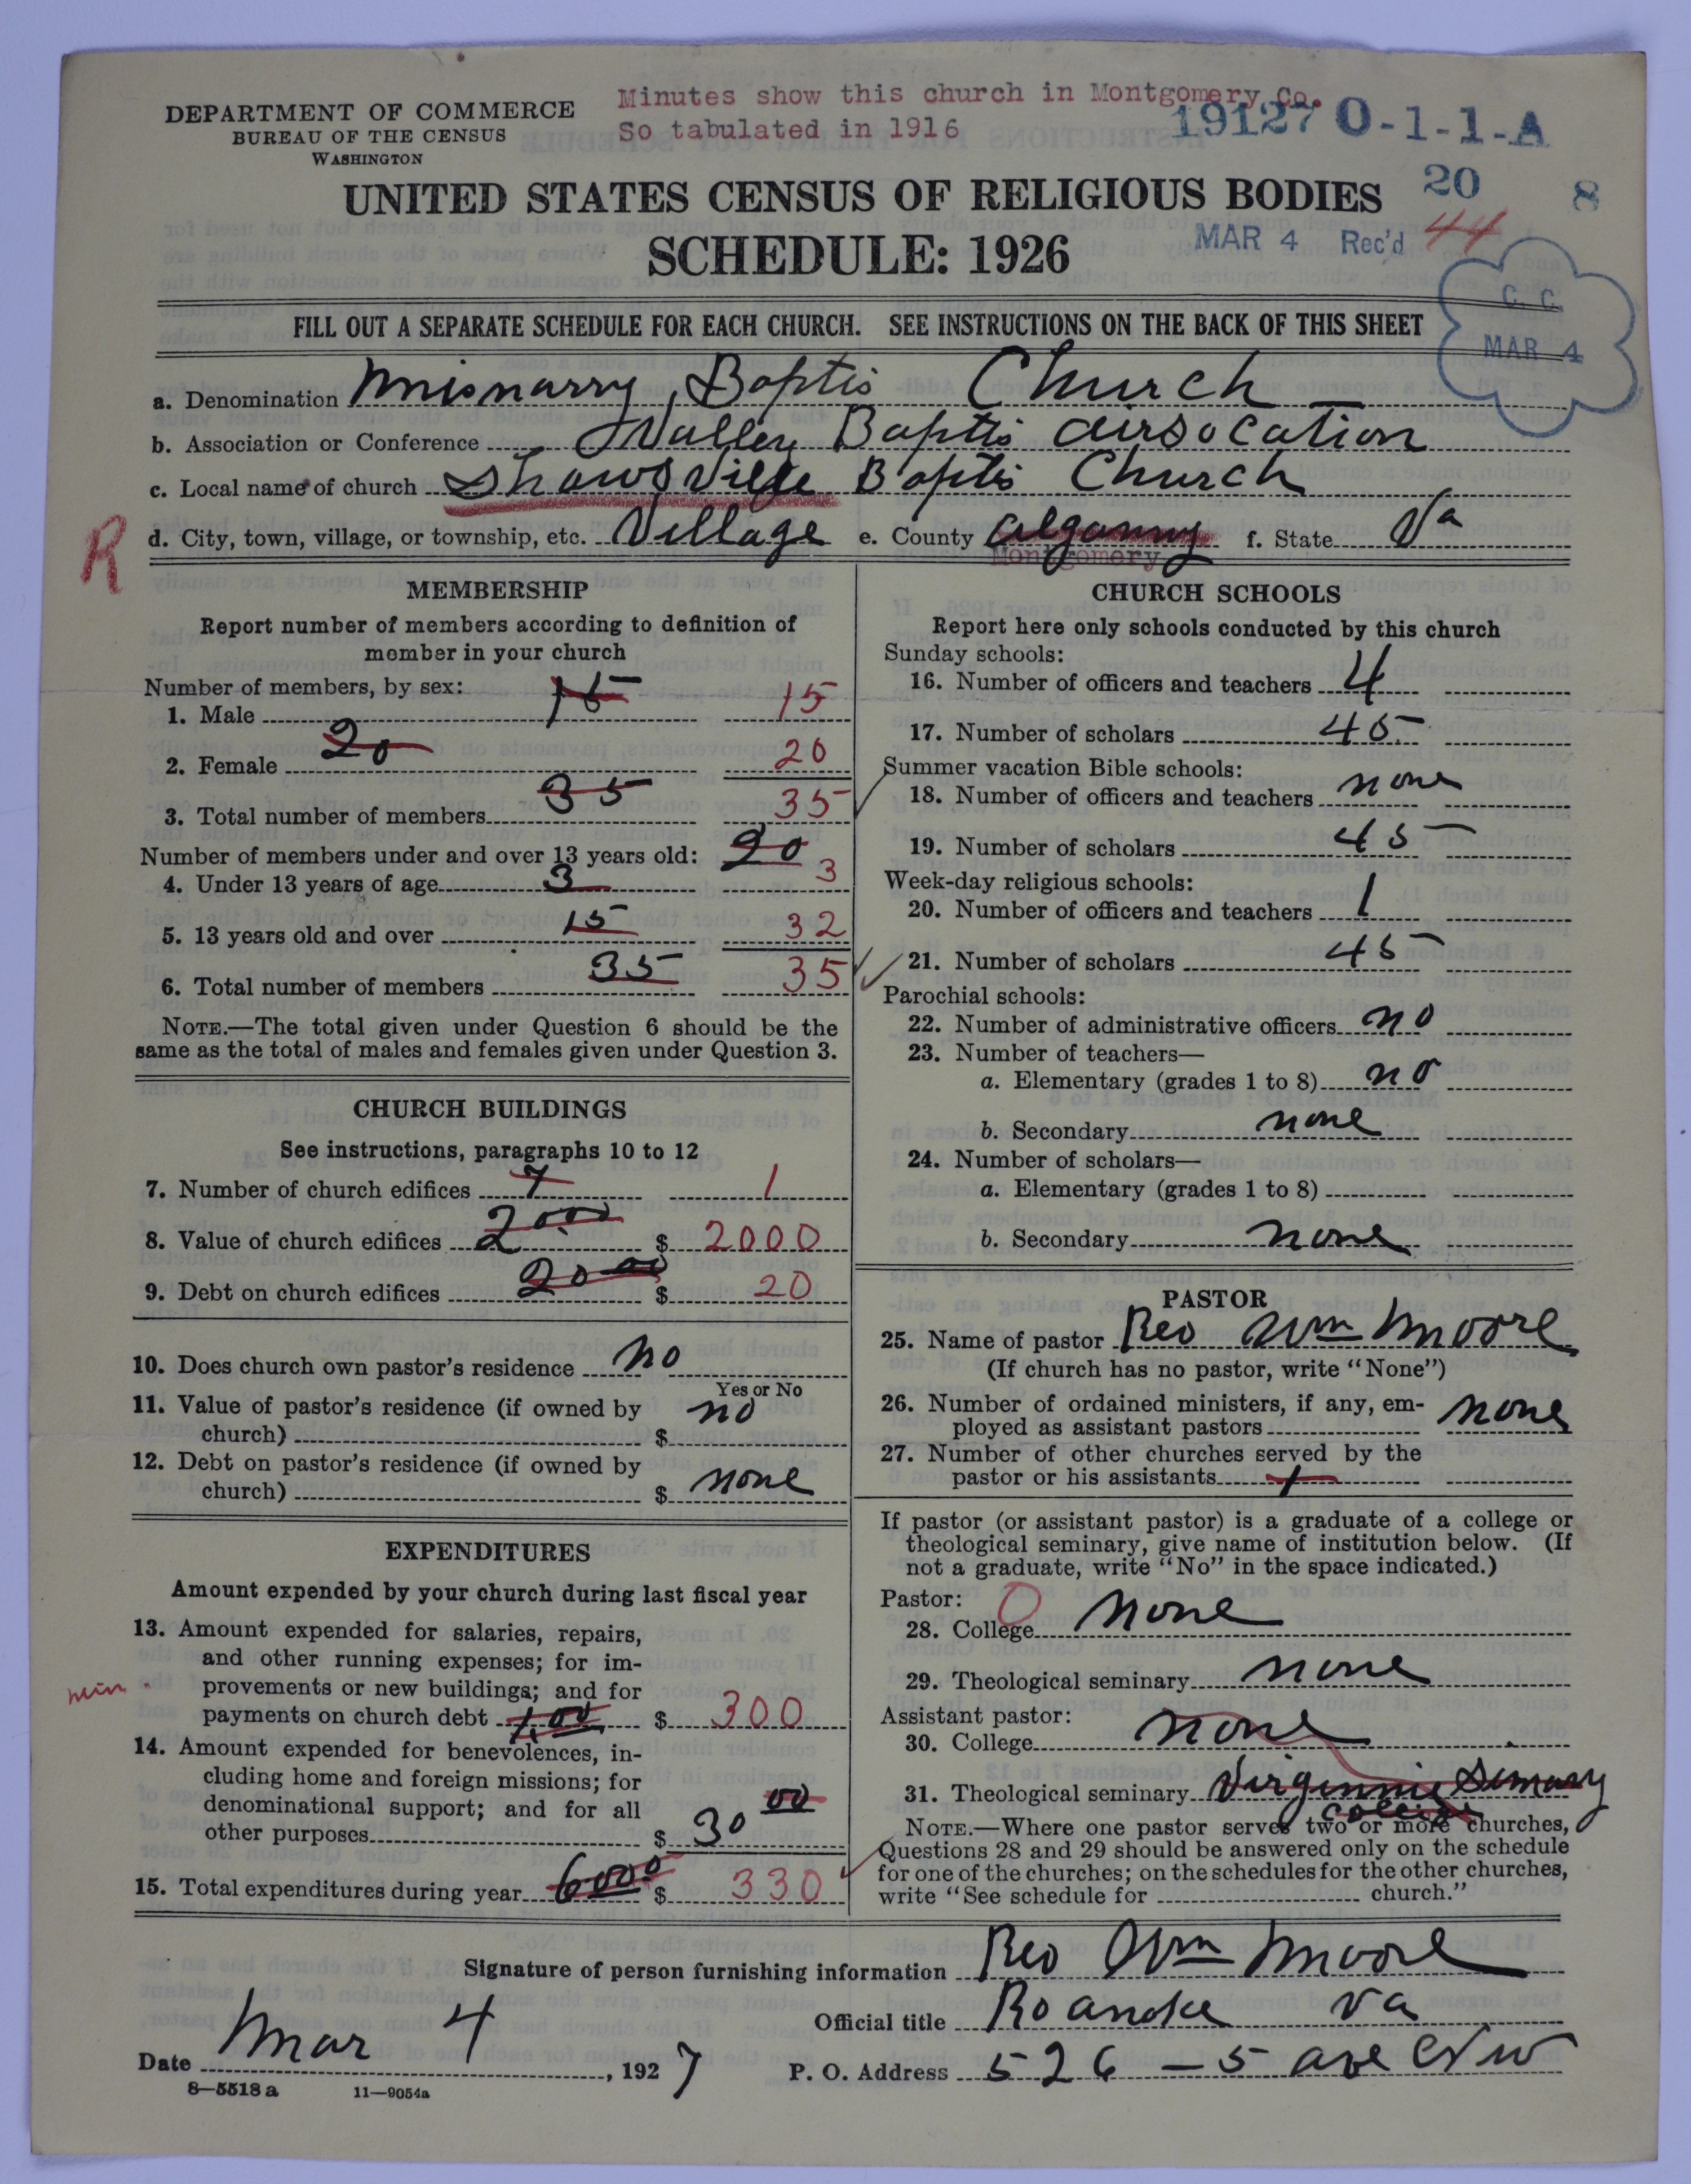 Minutes show this church in Montgomery Co.
So tabulated in 1916
19127 O-1-1-A
DEPARTMENT OF COMMERCE
BUREAU OF THE CENSUS
WASHINGTON
20 8
UNITED STATES CENSUS OF RELIGIOUS BODIES
MAR 4 Rec'd 44
SCHEDULE: 1926
C. C.
MAR 4
FILL OUT A SEPARATE SCHEDULE FOR EACH CHURCH. SEE INSTRUCTIONS ON THE BACK OF THIS SHEET
a. Denomination Misnarry Baptis Church
b. Association or Conference Valley Baptis airsocation
c. Local name of church Shawsville Baptis Church
R
d. City, town, village, or township, etc. Village e. County Alganny f. State Va
Montgomery
MEMBERSHIP
Report number of members according to definition of
member in your church
Number of members, by sex:
1. Male 15 15
2. Female 20 20
3. Total number of members 35 35
Number of members under and over 13 years old: 20
4. Under 13 years of age 3 3
5. 13 years old and over 15 32
6. Total number of members 35 35
NOTE.—The total given under Question 6 should be the
same as the total of males and females given under Question 3.
CHURCH BUILDINGS
See instructions, paragraphs 10 to 12
7. Number of church edifices 1
8. Value of church edifices 2000 $ 2000
9. Debt on church edifices 20 00 $ 20
10. Does church own pastor's residence no
Yes or No
11. Value of pastor's residence (if owned by
church) $ no
12. Debt on pastor's residence (if owned by
church) $ none
EXPENDITURES
Amount expended by your church during last fiscal year
13. Amount expended for salaries, repairs,
and other running expenses; for im-
provements or new buildings; and for
payments on church debt $ 300
14. Amount expended for benevolences, in-
cluding home and foreign missions; for
denominational support; and for all
other purposes $ 30 00
15. Total expenditures during year 6000 $ 330
CHURCH SCHOOLS
Report here only schools conducted by this church
Sunday schools:
16. Number of officers and teachers 4
17. Number of scholars 45
Summer vacation Bible schools:
18. Number of officers and teachers none
19. Number of scholars 45
Week-day religious schools:
20. Number of officers and teachers 1
21. Number of scholars 45
Parochial schools:
22. Number of administrative officers no
23. Number of teachers—
a. Elementary (grades 1 to 8) no
b. Secondary none
24. Number of scholars—
a. Elementary (grades 1 to 8)
b. Secondary none
PASTOR
25. Name of pastor Rev Wm Moore
(If church has no pastor, write "None")
26. Number of ordained ministers, if any, em-
ployed as assistant pastors none
27. Number of other churches served by the
pastor or his assistants 1
If pastor (or assistant pastor) is a graduate of a college or
theological seminary, give name of institution below. (If
not a graduate, write "No" in the space indicated.)
Pastor: 0
28. College none
29. Theological seminary none
Assistant pastor:
30. College none
31. Theological seminary Virginnie Semary
College
NOTE.—Where one pastor serves two or more churches,
Questions 28 and 29 should be answered only on the schedule
for one of the churches; on the schedules for the other churches,
write "See schedule for church."
Signature of person furnishing information Rev Wm Moore
Official title Roanoke Va
Date Mar 4, 1927 P. O. Address 526 - 5 ave N W
8—5518 a 11—9054a